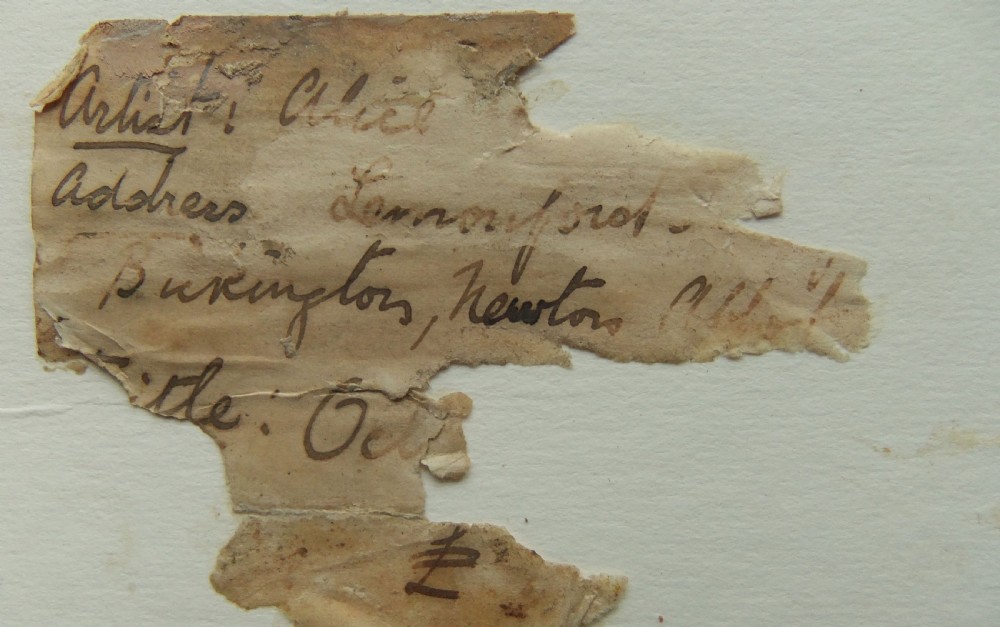 Artist: Alice
Address Lemonford.
Bickington, Newton Abbot
Title: Oct
£